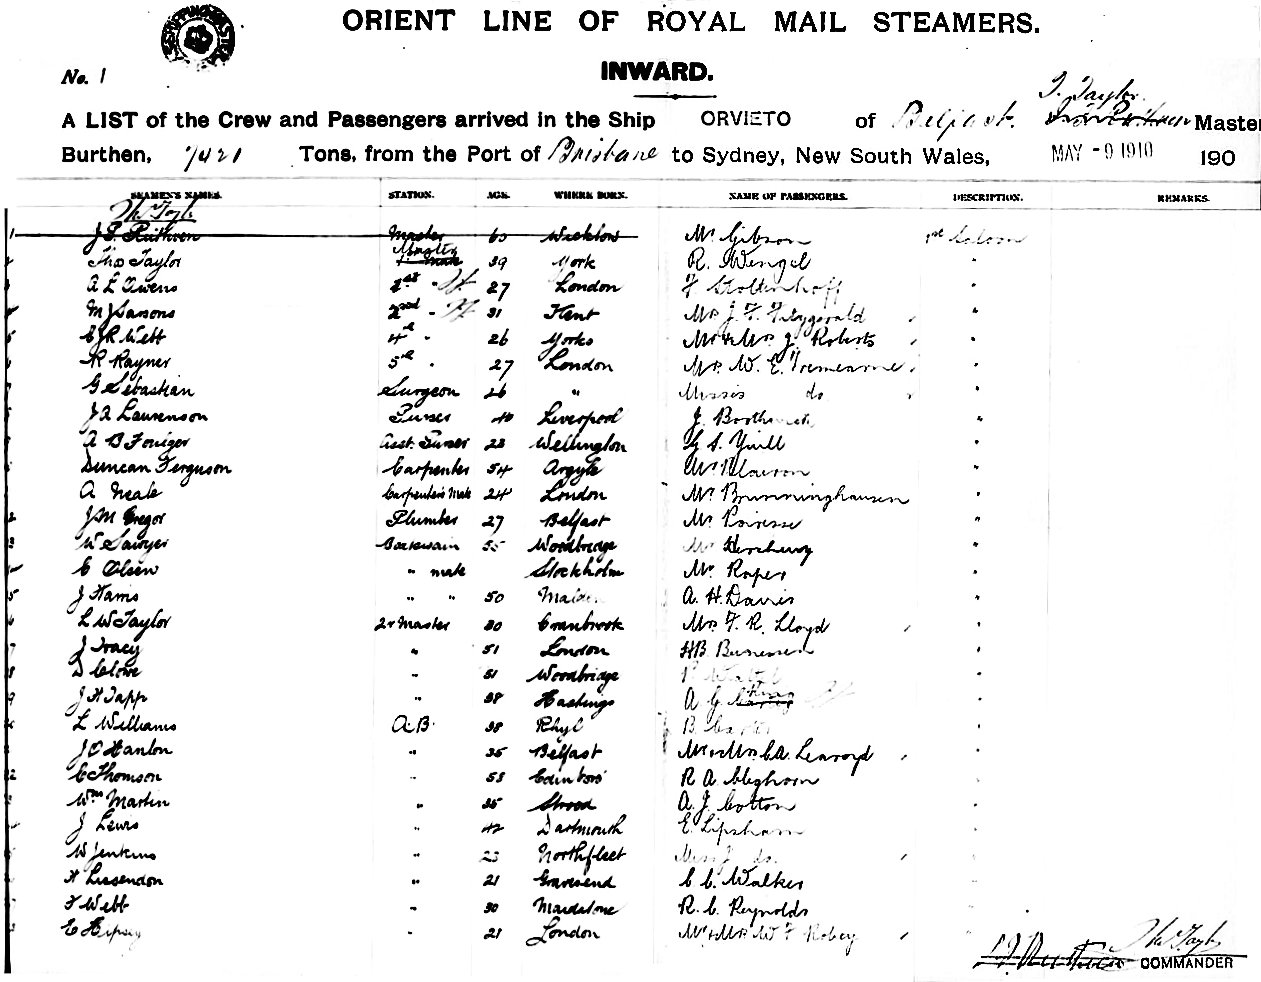 ORIENT LINE OF ROYAL MAIL STEAMERS.
No. 1
INWARD.
T. Taylor
A LIST of the Crew and Passengers arrived in the Ship ORVIETO of Belfast. Master
Burthen, 7421 Tons, from the Port of Brisbane to Sydney, New South Wales, MAY -9 1910 190
SEAMEN'S NAMES. STATION. AGE. WHERE BORN. NAME OF PASSENGERS. DESCRIPTION. REMARKS.
Thos Taylor
1 J. F. Ruthven Master 60 Wicklow Mr Gibson 1st Saloon
Thos Taylor Master 39 York R. Wengel "
A L Owens 1st 27 London F Stottenhoff "
M J Parsons 2nd 31 Kent Mrs J. F. Fitzgerald "
C J R Webb 4th " 26 Yorks Mr & Mrs J. Roberts "
R Rayner 5th " 27 London Mrs W. E. Tremearne "
G Sebastian Surgeon 26 " Misses do "
J A Laurenson Purser 40 Liverpool J. "
A B Asst. Purser 23 Wellington G S. Yuill "
Duncan Ferguson Carpenter 54 Argyle "
A Neale Carpenter's Mate 24 London Mr Brunninghausen "
J M Gregor Plumber 27 Belfast Mr "
W Sawyer Boatswain 55 Woodbridge Mr "
C Olsen " mate Stockholm Mr Roper "
J Harris " " 50 A. H. Davis "
L W Taylor Qr Master 30 Cranbrook Mrs F. R. Lloyd "
J Tracy " 51 London H B "
D Clowe " 51 Woodbridge "
J H Tapp " 38 Hastings A G King "
L Williams A.B. 38 Rhyl B. "
J O'Hanlon " 35 Belfast Mr & Mrs C A. Learoyd "
C Thomson " 53 Edinboro' R A Cleghorn "
Wm Martin " 35 Strood A. J Cotton "
J Lewis " 42 Dartmouth E. Lipsham "
W Jenkins " 23 Northfleet Miss J do. "
H Lissendon " 21 Gravesend C C. Walker "
F Webb " 30 Maidstone R. C. Reynolds "
C Hipsey " 21 London Mr & Mrs W F Robey "
Thos Taylor
J F Ruthven COMMANDER